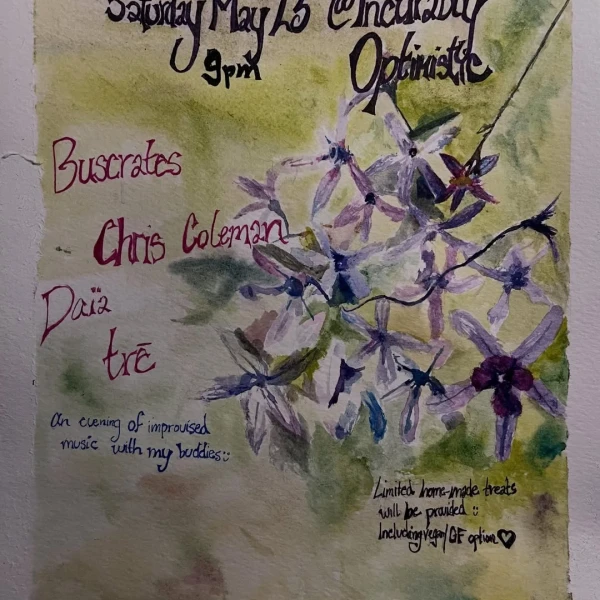 Saturday May 25 @ Incurably
9pm Optimistic
Buscrates
Chris Coleman
Daïa
trē
An evening of improvised
music with my buddies :)
Limited home-made treats
will be provided :)
Including vegan/GF option ♥